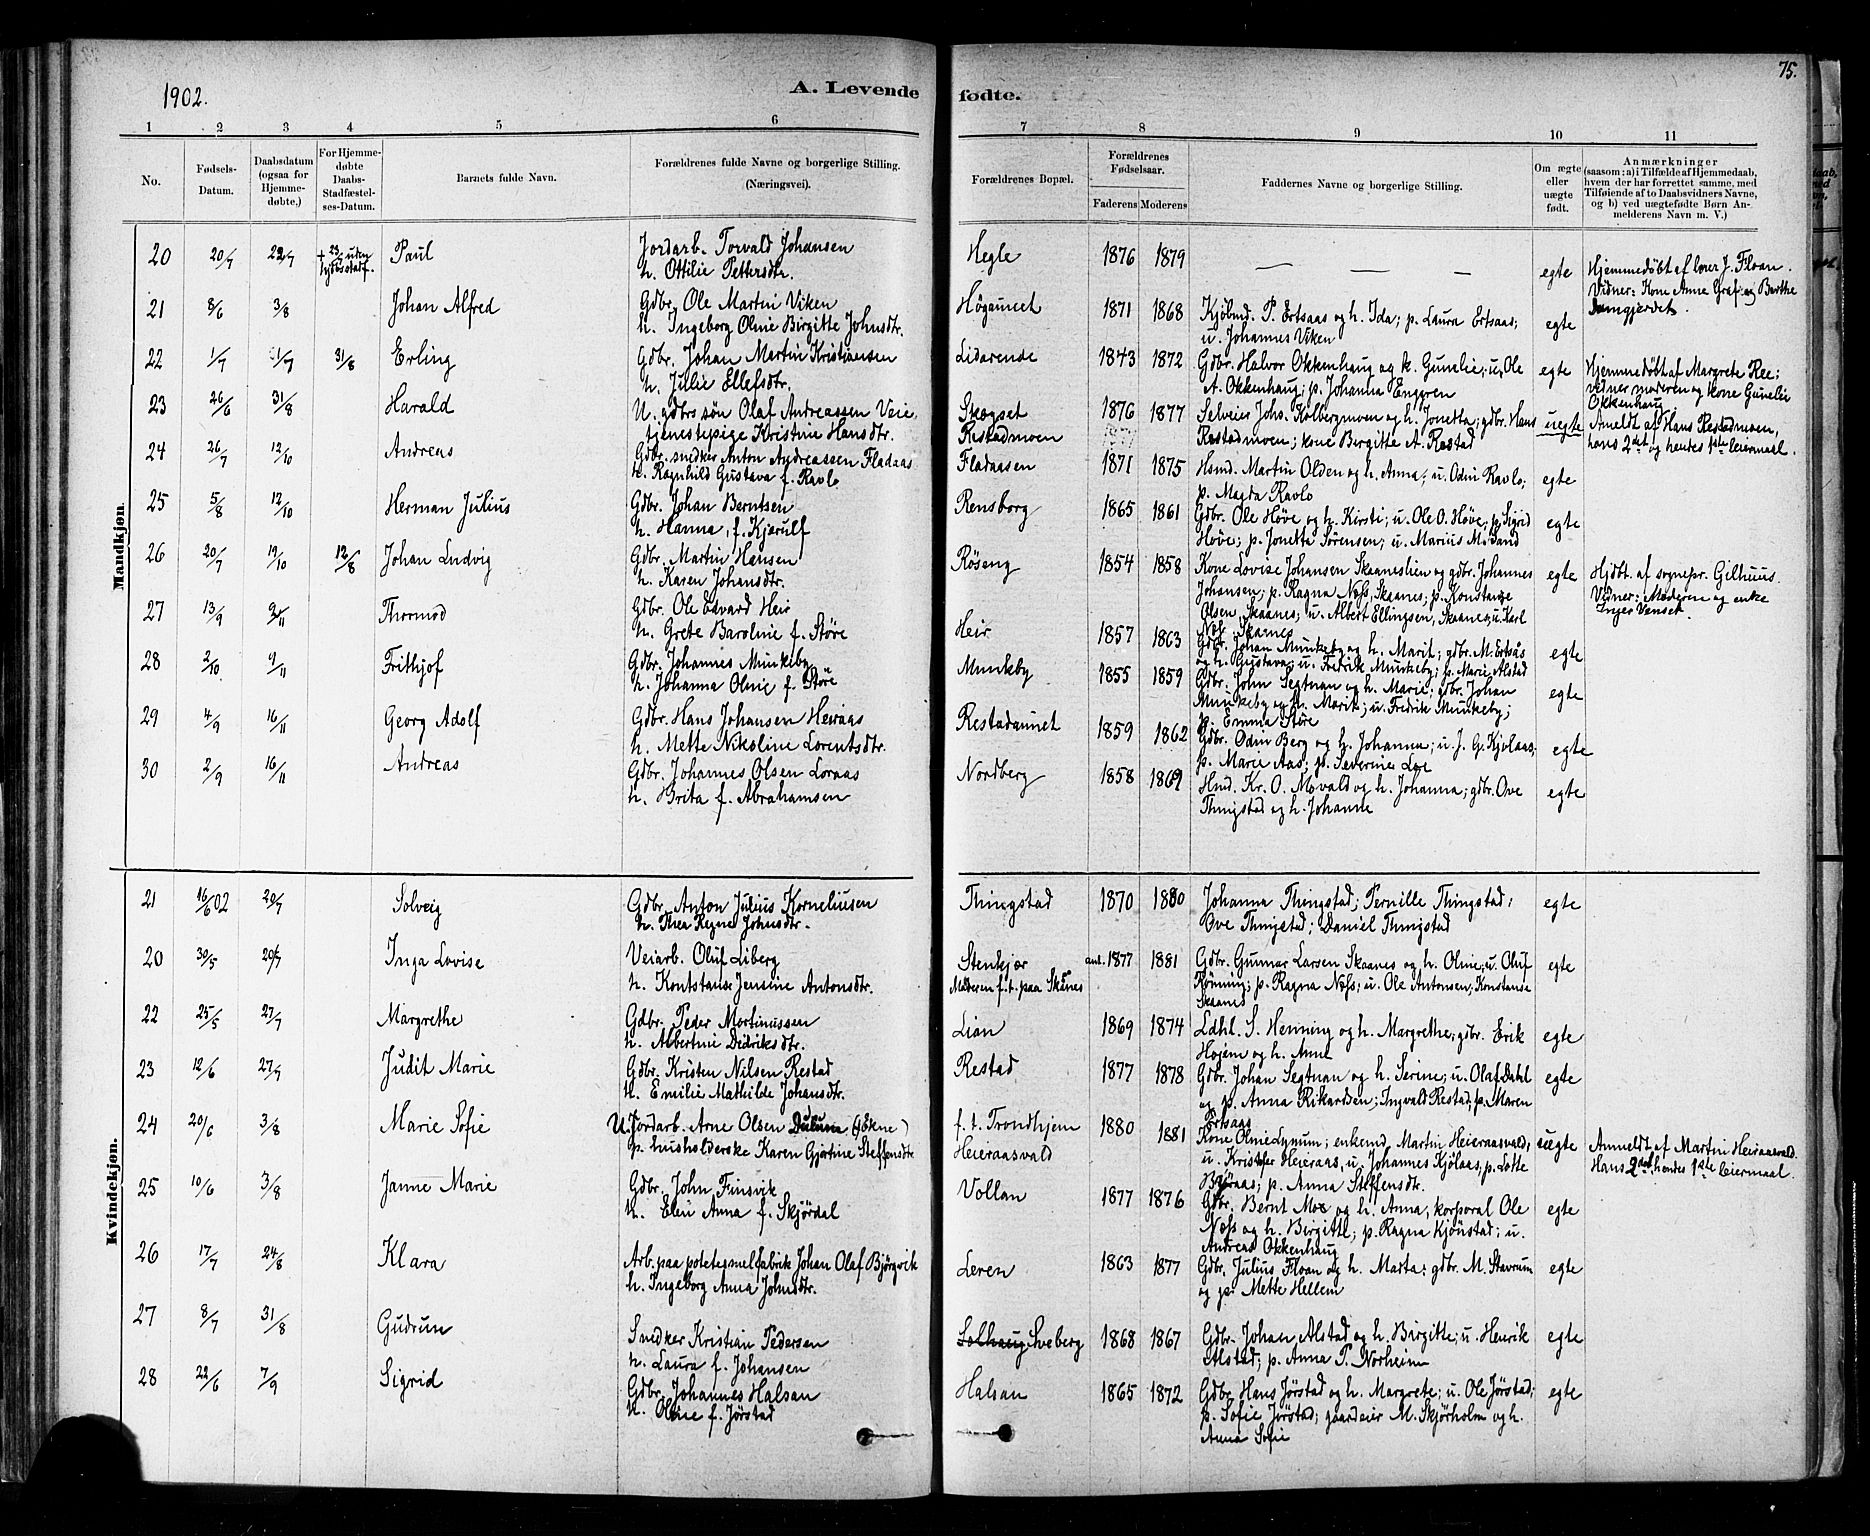 1902.
A. Levende fødte.
75.
1 2 3 4 5 6 7 8 9 10 11
No.
Fødsels-Datum.
Daabsdatum (ogsaa for Hjemme-døbte.)
For Hjemme-døbte Daabs-Stadfæstel-ses-Datum.
Barnets fulde Navn.
Forældrenes fulde Navne og borgerlige Stilling. (Næringsvei).
Forældrenes Bopæl.
Forældrenes Fødselsaar.
Faderens Moderens
Faddernes Navne og borgerlige Stilling.
Om ægte eller uægte født.
Anmærkninger (saasom: a) i Tilfælde af Hjemmedaab, hvem der har forrettet samme, med Tilføiende af to Daabsvidners Navne, og b) ved uægtefødte Børn An-melderens Navn m. V.)
Mandkjøn.
20 20/7 22/7 + 23/7 uden Paul
Jordarb. Torvald Johansen
h. Ottilie Pettersdtr.
Hegle 1876 1879 — — — egte
Hjemmedøbt af lærer J. Floan.
Vidner: Kone Anne Graf og Barthe
21 8/6 3/8 Johan Alfred
Gdbr. Ole Martin Viken
h. Ingeborg Oline Birgitte Johnsdtr.
Høgaunet 1871 1868
Kjøbmd. P. Ertsaas og h. Ida; p. Laura Ertsaas;
u. Johannes Viken
egte
22 1/7 31/7 31/8 Erling
Gdbr. Johan Martin Kristiansen
h. Julie Ellefsdtr.
Lidarende 1843 1872
Gdbr. Halvor Okkenhaug og k. Gunelie; u. Ole
A. Okkenhaug; p. Johanna Enggren
egte
Hjemmedøbt af Margrete Ree;
vidner moderen og kone Gunelie
Okkenhaug
23 26/6 31/8 Harald
U. gdbrs søn Olaf Andreassen Veie,
tjenestepige Kristine Hansdtr.
Skogset
Restadmoen
1876 1877
Selveier Johs. Kolbergmoen og h. Jonetta; gdbr. Hans
Restadmoen; kone Birgitte A. Rostad
uegte
Anmeldt af Hans Restadmoen,
hans 2det og hendes 1ste leiermaal.
24 26/7 12/10 Andreas
Gdbr. snedker Anton Andreassen Fladaas
h. Ragnhild Gustava f. Ravlo
Fladaasen 1871 1875
Hsmd. Martin Olden og h. Anna; u. Odin Ravlo;
p. Magda Ravlo
egte
25 5/8 12/10 Herman Julius
Gdbr. Johan Berntsen
h. Hanna, f. Kjerulf
Rensborg 1865 1861
Gdbr. Ole Høve og h. Kirsti; u. Ole O. Høve; p. Sigrid
Høve; p. Jonette Sørensen; u. Marius M. Sand
egte
26 20/7 19/10 12/8 Johan Ludvig
Gdbr. Martin Hansen
h. Karen Johansdtr.
Røseng 1854 1858
Kone Lovise Johansen Skaaneslien og gdbr. Johannes
Johansen; p. Ragna Næss, Skaanes; p. Konstanse
Olsen Skaanes; u. Albert Ellingsen, Skaanes; u. Karl
Næss, Skaanes
egte
Hjdbt. af sognepr. Gilhuus.
Vidner: Moderen og enke
Inger Venset
27 13/9 9/11 Thormod
Gdbr. Ole Edvard Heir
h. Grete Baroline f. Støre
Heir 1857 1863
Gdbr. Johan Munkeby og h. Marit; gdbr. M. Ertsås
og h. Gustava; u. Fredrik Munkeby; p. Marie Alstad
egte
28 2/10 9/11 Frithjof
Gdbr. Johannes Munkeby
h. Johanna Oline f. Støre
Munkeby 1855 1859
Gdbr. John Segtnan og h. Marie; gdbr. Johan
Munkeby og h. Marit; u. Fredrik Munkeby;
p. Emma Støre
egte
29 4/9 16/11 Georg Adolf
Gdbr. Hans Johansen Heiraas
h. Mette Nikoline Lorentsdtr.
Restadaunet 1859 1862
Gdbr. Odin Berg og h. Johanna; u. J. G. Kjølaas;
p. Marie Aas; p. Severine Loe
egte
30 2/9 16/11 Andreas
Gdbr. Johannes Olsen Loraas
h. Brita f. Abrahamsen
Nordberg 1858 1869
Hmd. Kr. O. Movald og h. Johanna; gdbr. Ove
Thingstad og h. Johanne
egte
Kvindekjøn.
21 16/6 02 20/7 Solveig
Gdbr. Anton Julius Korneliusen
h. Thea Regine Johnsdtr.
Thingstad 1870 1880
Johanna Thingstad; Pernille Thingstad;
Ove Thingstad; Daniel Thingstad
egte
20 30/5 20/7 Inga Lovise
Veiarb. Oluf Liberg
h. Kontstanse Jensine Antonsdtr.
Stenkjær
Moderen f. t. paa Skånes
ant. 1877 1881
Gdbr. Gunnar Larsen Skaanes og h. Oline; u. Oluf
Rønning; p. Ragna Næss; u. Ole Antonsen; Konstanse
Skaanes
egte
22 25/5 27/7 Margrethe
Gdbr. Peder Mortinussen
h. Albertine Didriksdtr.
Lian 1869 1874
Ldhl. S. Henning og h. Margrethe; gdbr. Erik
Hojem og h. Anne
egte
23 12/6 27/7 Judit Marie
Gdbr. Kristen Nilsen Restad
h. Emilie Mathilde Johansdtr.
Restad 1877 1878
Gdbr. Johan Segtnan og h. Serine; u. Olaf Dahl
og p. Anna Rikardsen; Ingvald Restad; p. Maren
Ertsaas
egte
24 20/6 3/8 Marie Sofie
U. Jordarb. Arne Olsen Duluun (Ekne)
p. husholderske Karen Gjørtine Steffensdtr
f. t. Trondhjem
Heieraasvald
1880 1881
Kone Oline Lynum; enkemd. Martin Heieraasvald,
u. Kristofer Heieraas, u. Johannes Kjølaas, p. Lotte
Bjøraas; p. Anna Steffensdtr.
uegte
Anmeldt af Martin Heiraasvald.
Hans 2det hendes 1ste leiermaal.
25 10/6 3/8 Janne Marie
Gdbr. John Finsvik
h. Elen Anna f. Skjördal
Vollan 1877 1876
Gdbr. Bernt Moe og h. Anna, korporal Ole
Næss og h. Birgitte; p. Ragna Kjönstad; u.
Andreas Okkenhaug
egte
26 17/7 24/8 Klara
Arb. paa potetesmelfabrik Johan Olaf Bjørgvik
h. Ingeborg Anna Johnsdtr.
Leren 1863 1877
Gdbr. Julius Floan og h. Marta; gdbr. M. Stavrum
og p. Mette Hellem
egte
27 8/7 31/8 Gudrun
Snedker Kristian Pedersen
h. Laura f. Johansen
Solhaug Sveberg 1868 1867
Gdbr. Johan Alstad og h. Birgitte; u. Henrik
Alstad; p. Anna P. Norheim
egte
28 22/6 7/9 Sigrid
Gdbr. Johannes Halsan
h. Oline f. Jørstad
Halsan 1865 1872
Gdbr. Hans Jørstad og h. Margrete; u. Ole Jørstad;
p. Sofie Jørstad; gaardeier M. Skjørholm og h.
Anna Sofie
egte